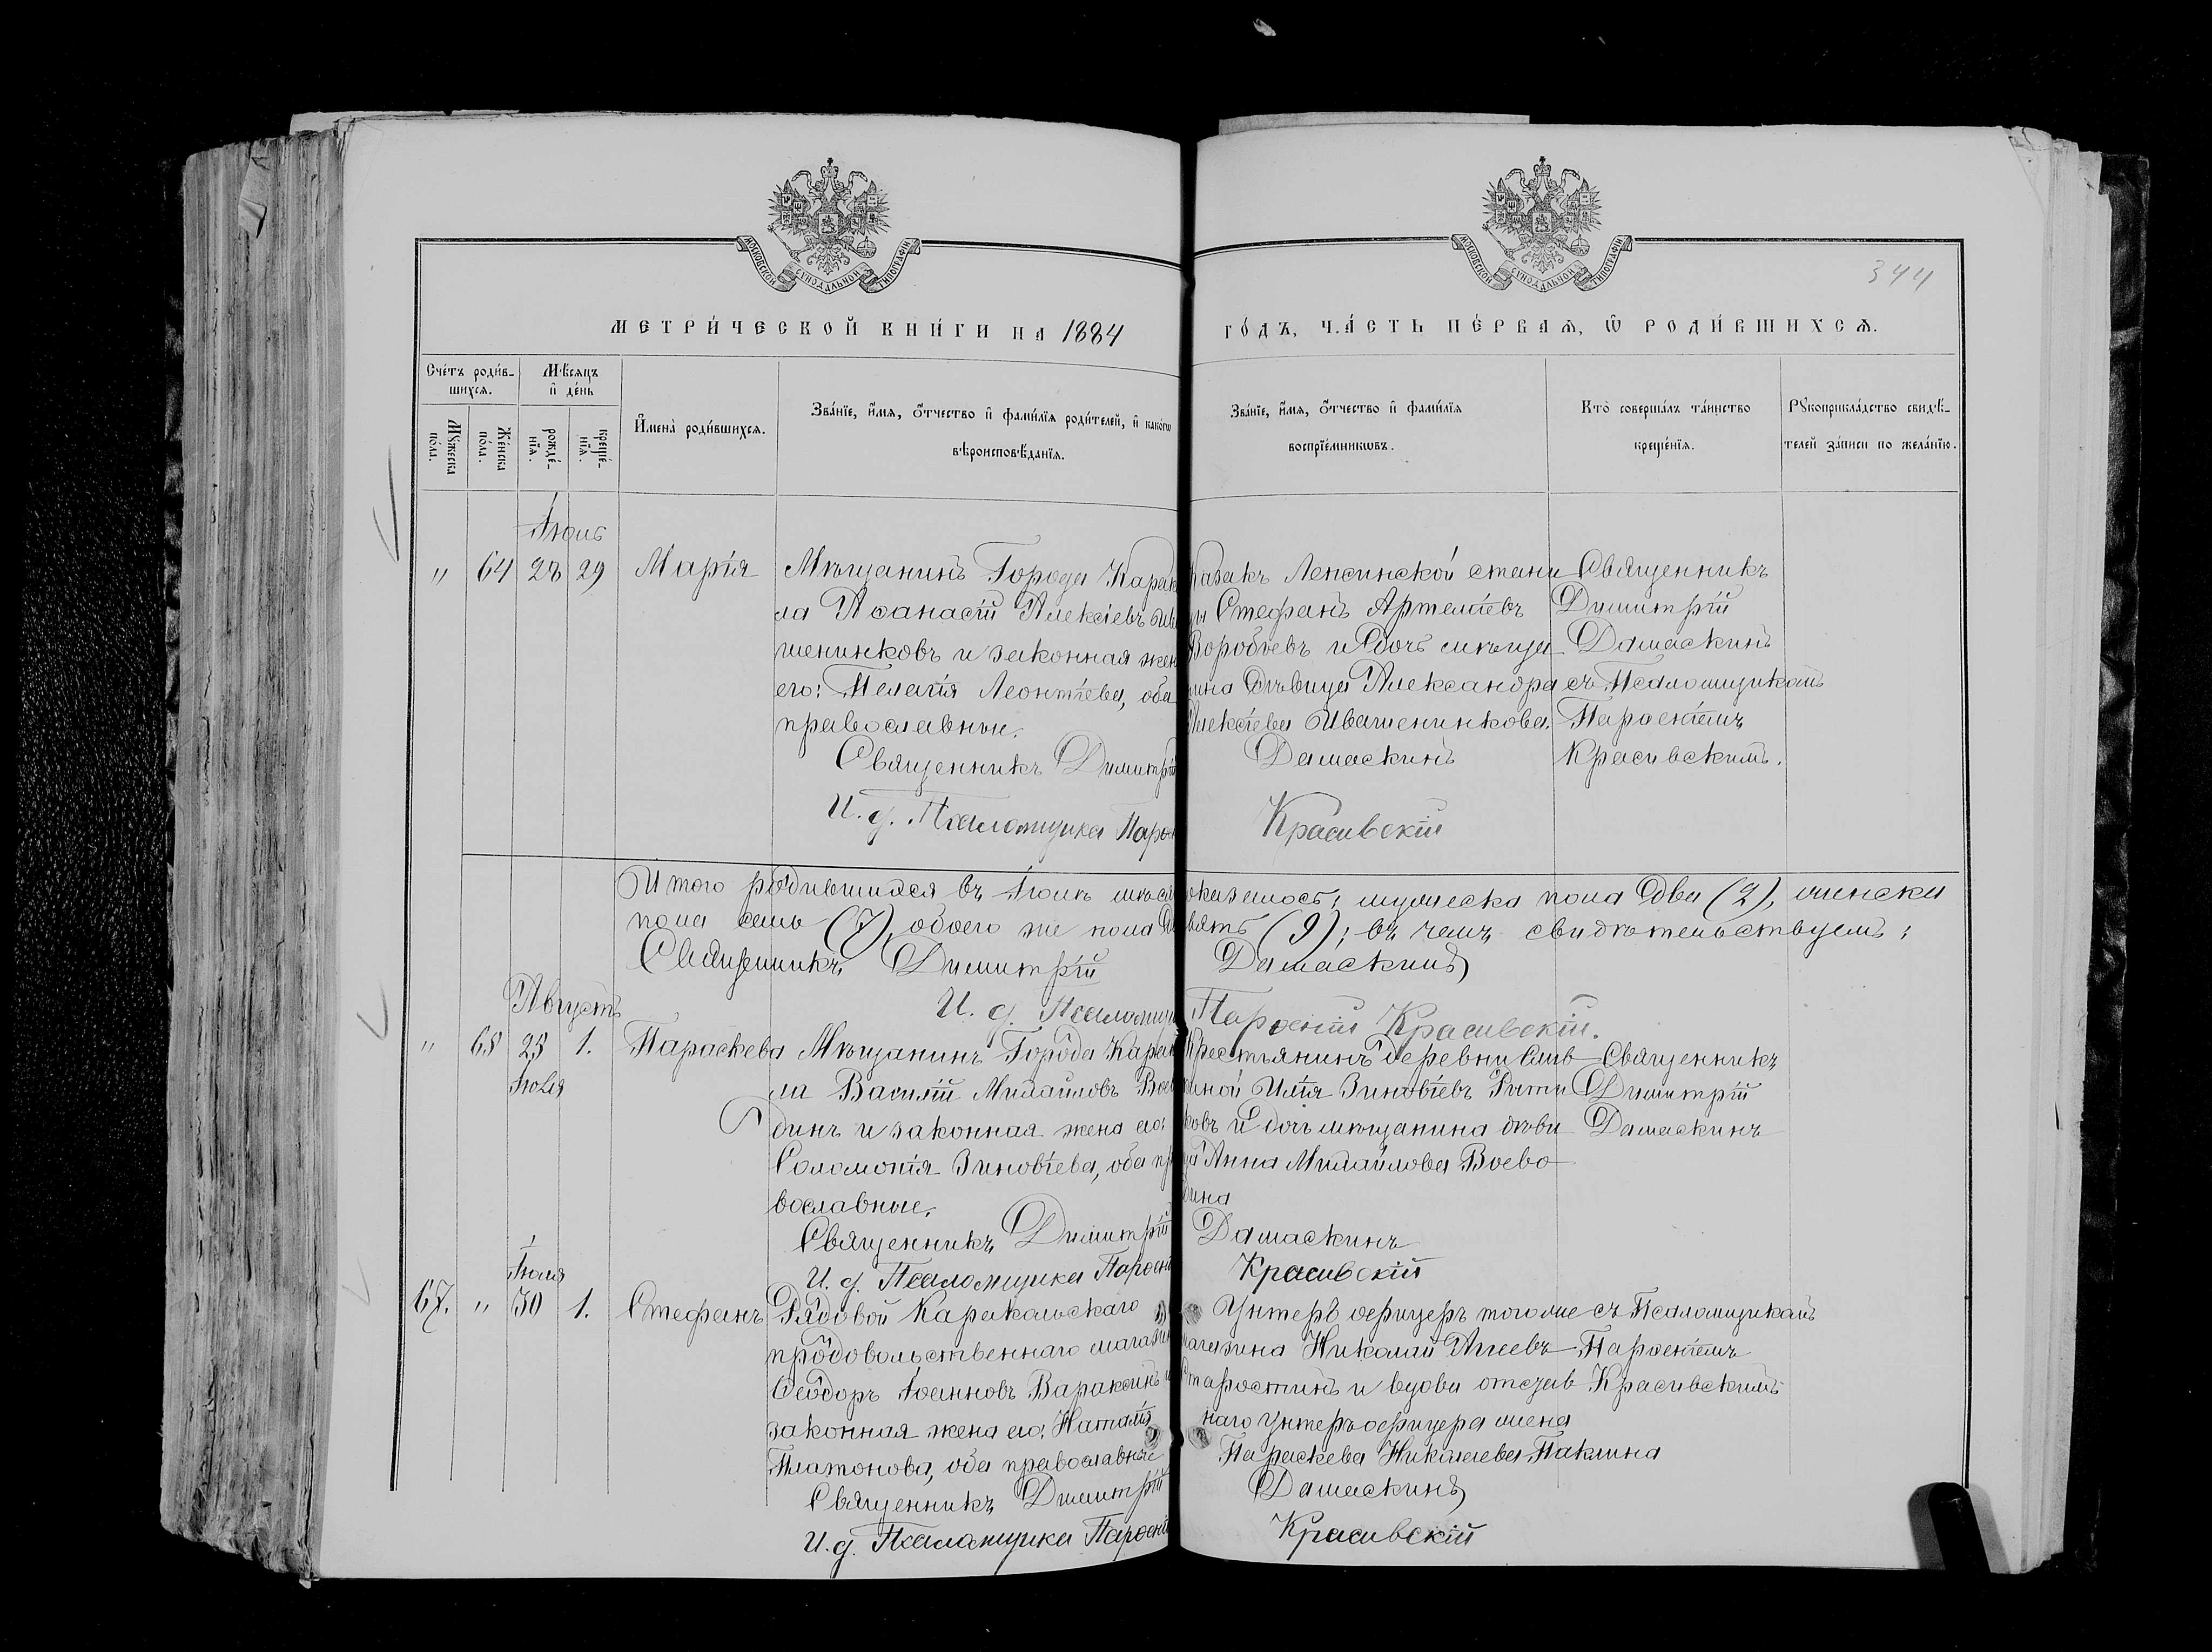 МОСКОВСКОЙ СѴНОДАЛЬНОЙ ТИПОГРАФІИ
МОСКОВСКОЙ СѴНОДАЛЬНОЙ ТИПОГРАФІИ
344
МЕТРИ́ЧЕСКОЙ КНИ́ГИ НА 1884 ГО́ДЪ, ЧА́СТЬ ПЕ́РВАѦ, Ѡ҆ РОДИ́ВШИХСѦ.
Сче́тъ роди́в-
шихсѧ.
Мꙋ́жеска
по́ла.
Же́нска
по́ла.
Мѣ́сѧцъ
и҆ де́нь
рожде́-
нїѧ.
креще́-
нїѧ.
И҆мена̀ роди́вшихсѧ.
Зва́нїе, и҆́мѧ, о҆́тчество и҆ фами́лїѧ роди́телей, и҆ како́гѡ
вѣроисповѣ́данїѧ.
Зва́нїе, и҆́мѧ, о҆́тчество и҆ фами́лїѧ
воспрїе́мникѡвъ.
Кто̀ соверша́лъ та́инство
креще́нїѧ.
Рꙋкоприкла́дство свидѣ́-
телей за́писи по жела́нїю.
Іюль
" 64 28 29 Марія Мѣщанинъ Города Карак
ла Аѳанасій Алексіевъ Ива
шенинковъ и законная жен
его: Пелагія Леонтіева, оба
православные.
Священникъ Димитрій
И. д. Псаломщика Парѳ
Казакъ Лепсинской стани
цы Стефанъ Артеміевъ
Воробьевъ и дочь мѣща
нина дѣвица Александра
Алексіева Ивашенинкова.
Дамаскинъ
Красивскій
Священникъ
Димитрій
Дамаскинъ
съ Псаломщикомъ
Парѳеніемъ
Красивскимъ.
Итого родившихся въ Іюлѣ мѣся оказалось; мужеска пола два (2), женска
пола семь (7), обоего же пола де вять (9); въ чемъ свидѣтельствуемъ:
Священникъ Димитрій Дамаскинъ
И. д. Псаломщи Парѳеній Красивскій.
Августъ
" 65 25 1. Параскева Мѣщанинъ Города Карак
Іюля
ла Василій Михайловъ Вое
динъ и законная жена его:
Соломонія Зиновіева, оба пр
вославные.
Священникъ Димитрій
И. д. Псаломщика Парѳені
Крестьянинъ деревни Слив
ной Илія Зиновіевъ
ковъ и дочь мѣщанина дѣви
ца Анна Михайлова Воево
дина
Дамаскинъ
Красивскій
Священникъ
Димитрій
Дамаскинъ
Іюля
67. " 30 1. Стефанъ Рядовой Каракольскаго
продовольственнаго магазин
Ѳеодоръ Іоанновъ Вараксинъ и
законная жена его: Наталія
Платонова, оба православные
Священникъ Димитрій
И. д. Псаломщика Парѳені
Унтеръ офицеръ того же
магазина Николай Агеевъ
Старостинъ и вдова отстав
наго унтеръ офицера жена
Параскева Николаева Паклина
Дамаскинъ
Красивскій
съ Псаломщикомъ
Парѳеніемъ
Красивскимъ